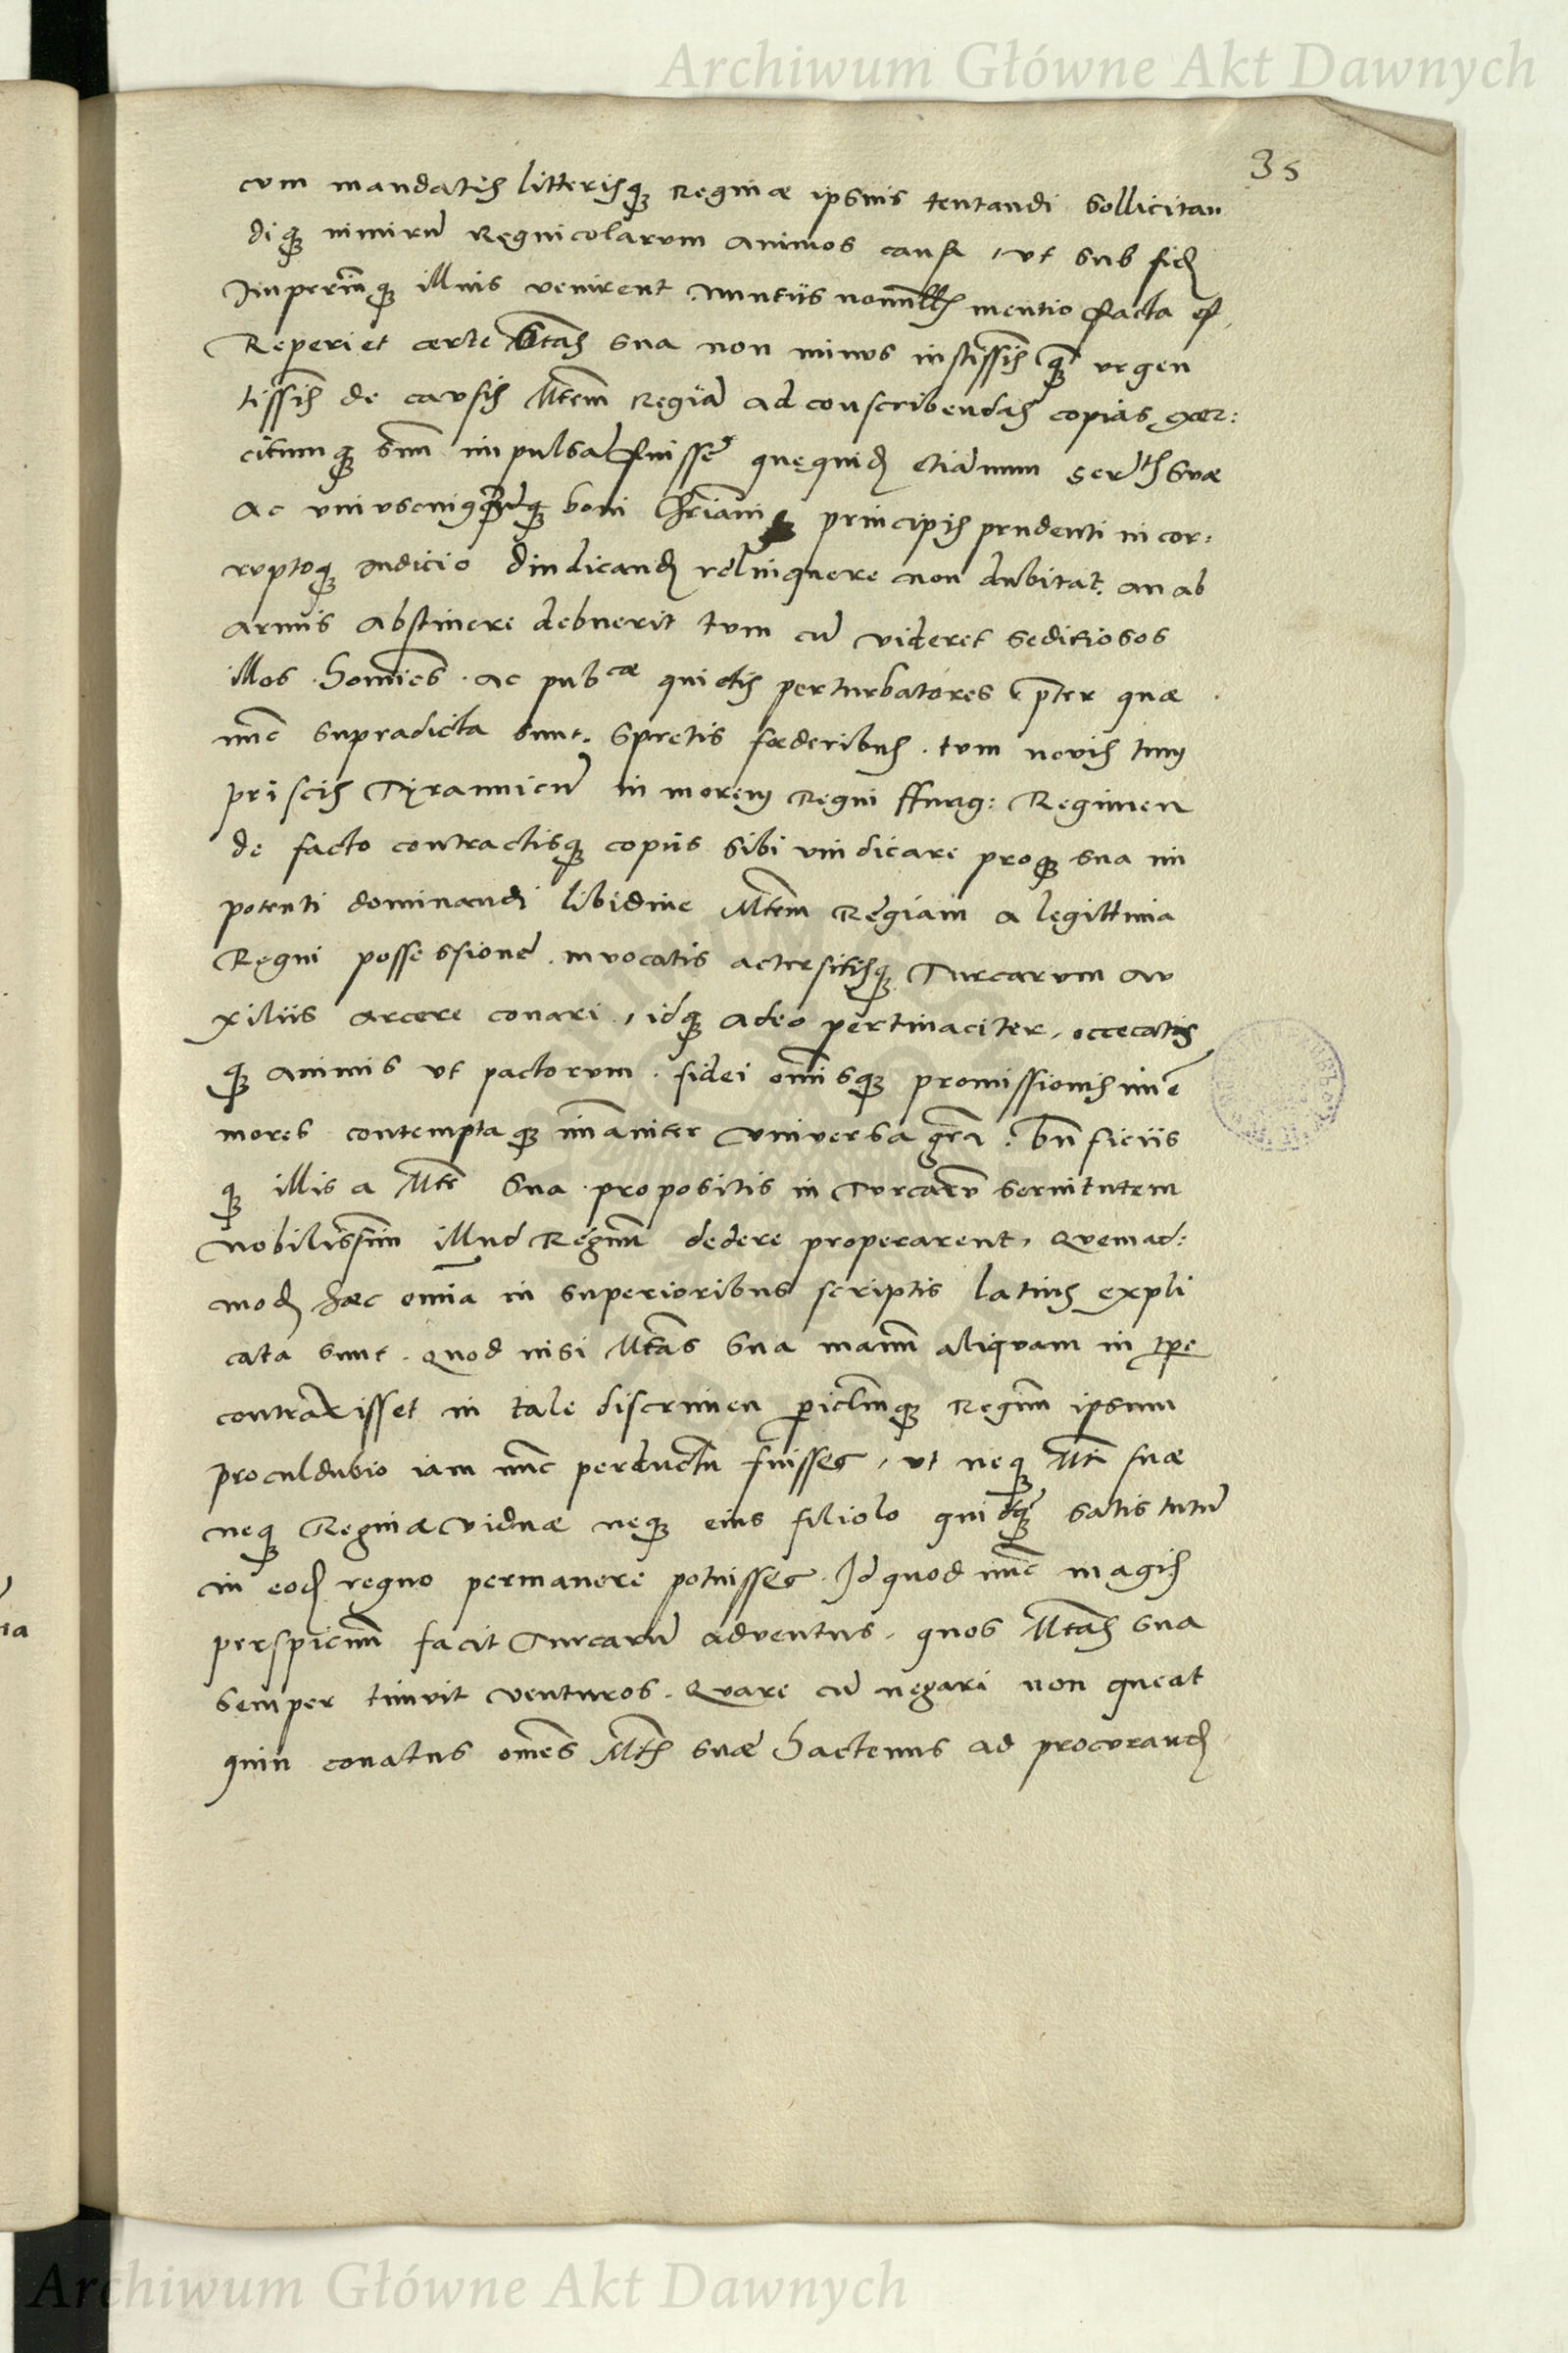 Archiwum Główne Akt Dawnych
35
cum mandatis litterisq₃ Reginae ipsius tentandi sollicitan
diq₃ nimirū Regnicolarum animos causa, ut sub fidē
Imperiūq₃ illius venirent. nuntiis nonnullis mentio facta est.
Reperiet certe Mtas sua non minus iustissis̄ q̄₃ urgen
tissis̄ de causis Mtem Regiā ad conscribendas copias, exer:
citumq₃ suū impulsā fuisse, quę quidē etiānum Sertis suae
ac uniuscuiusq₃ boni Chriani principis prudenti incor:
ruptoq₃ iudicio diiudicandū relinquere non dubitat. an ab
armis abstinere debuerit tum cū videret seditiosos
illos homīes. ac pubcae quietis perturbatores, p̄ter quae
nūc supradicta sunt. spretis foederibus. tum novis tum
priscis Tyrannicū in morem Regni Hung: Regimen
de facto contractisq₃ copiis sibi vindicare proq₃ sua im
potenti dominandi libidine Mtem Regiam a legittima
Regni possessione. invocatis accersitisq₃ Turcarum au
xiliis arcere conari, idq₃ adeo pertinaciter, occecatis
q₃ animis ut pactorum. fidei om̄isq₃ promissionis imē
mores contemptaq₃ im̄aniter universa gr̄a. bn̄ficiis
q₃ illis a Mte sua propositis in Turcarū servitutem
nobilissimū illud Regnū dedere properarent. Quemad:
modū haec om̄ia in superioribus scriptis latius expli
cata sunt. Quod nisi Mtas sua manū aliquam in tp̄e
contraxisset in tale discrimen pericl̄mq₃ Regnū ipsum
proculdubio iam nūc perductū fuisset, ut neq₃ Mti suae
neq₃ Reginae viduae neq₃ eius filiolo quidq̄₃ satis tutū
in eodē regno permanere potuisset. Id quod nūc magis
perspicuū facit Turcarū adventus. quos Mtas sua
semper timuit venturos. Quare cū negari non queat
quin conatus om̄es Mtis suae hactenus ad procurandā
Archiwum Główne Akt Dawnych